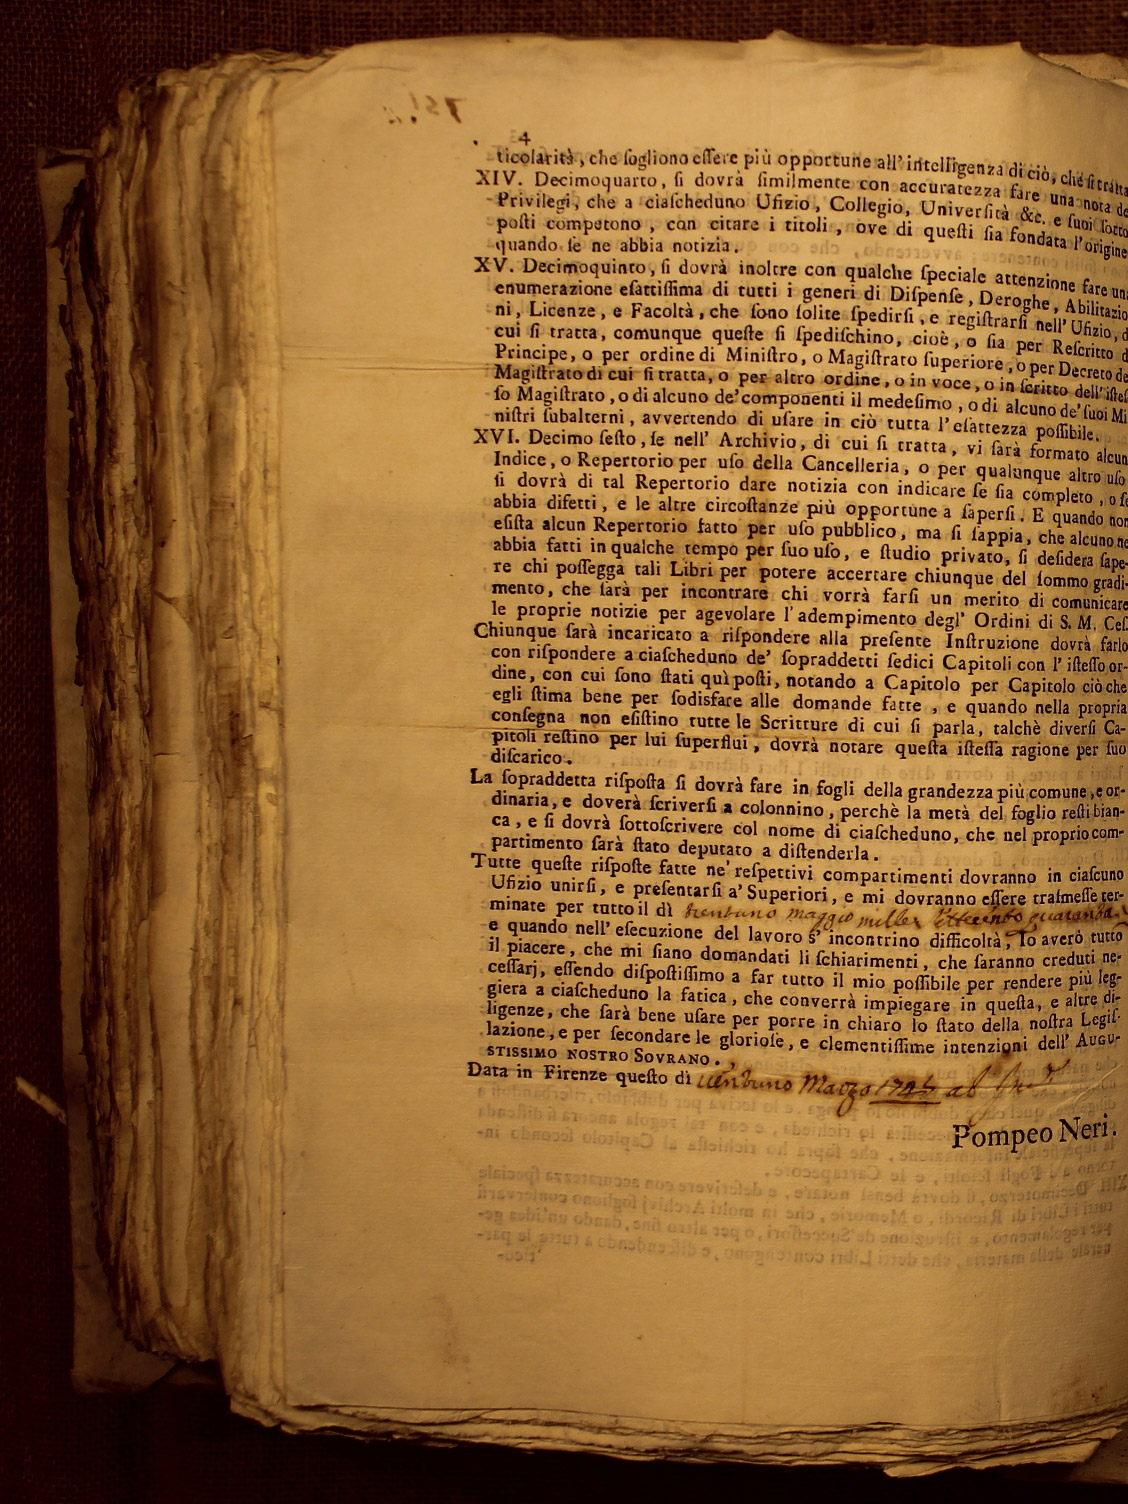 4
ticolarità, che ſogliono eſſere più opportune all' intelligenza di ciò, che ſi tratta
XIV. Decimoquarto, ſi dovrà ſimilmente con accuratezza fare una nota de
Privilegi, che a ciaſcheduno Ufizio, Collegio, Univerſità &c. e ſuoi ſotto
poſti competono, con citare i titoli, ove di queſti ſia fondata l'origine
quando ſe ne abbia notizia.
XV. Decimoquinto, ſi dovrà inoltre con qualche ſpeciale attenzione fare un
enumerazione eſattiſſima di tutti i generi di Diſpenſe, Deroghe, Abilitazio
ni, Licenze, e Facoltà, che ſono ſolite ſpedirſi, e regiſtrarſi nell' Ufizio, d
cui ſi tratta, comunque queſte ſi ſpediſchino, cioè, o ſia per Reſcritto d
Principe, o per ordine di Miniſtro, o Magiſtrato ſuperiore, o per Decreto de
Magiſtrato di cui ſi tratta, o per altro ordine, o in voce, o in ſcritto dell'iſteſ
ſo Magiſtrato, o di alcuno de' componenti il medeſimo, o di alcuno de' ſuoi Mi
niſtri ſubalterni, avvertendo di uſare in ciò tutta l'eſattezza poſſibile.
XVI. Decimo ſeſto, ſe nell' Archivio, di cui ſi tratta, vi ſarà formato alcun
Indice, o Repertorio per uſo della Cancelleria, o per qualunque altro uſo
ſi dovrà di tal Repertorio dare notizia con indicare ſe ſia completo, o ſe
abbia difetti, e le altre circoſtanze più opportune a ſaperſi. E quando non
eſiſta alcun Repertorio fatto per uſo pubblico, ma ſi ſappia, che alcuno ne
abbia fatti in qualche tempo per ſuo uſo, e ſtudio privato, ſi deſidera ſape-
re chi poſſegga tali Libri per potere accertare chiunque del ſommo gradi-
mento, che ſarà per incontrare chi vorrà farſi un merito di comunicare
le proprie notizie per agevolare l'adempimento degl' Ordini di S. M. Ceſ.
Chiunque ſarà incaricato a riſpondere alla preſente Inſtruzione dovrà farlo
con riſpondere a ciaſcheduno de' ſopraddetti ſedici Capitoli con l' iſteſſo or-
dine, con cui ſono ſtati quì poſti, notando a Capitolo per Capitolo ciò che
egli ſtima bene per ſodisfare alle domande fatte, e quando nella propria
conſegna non eſiſtino tutte le Scritture di cui ſi parla, talchè diverſi Ca-
pitoli reſtino per lui ſuperflui, dovrà notare queſta iſteſſa ragione per ſuo
diſcarico.
La ſopraddetta riſpoſta ſi dovrà fare in fogli della grandezza più comune, e or-
dinaria, e doverà ſcriverſi a colonnino, perchè la metà del foglio reſti bian-
ca, e ſi dovrà ſottoſcrivere col nome di ciaſcheduno, che nel proprio com-
partimento ſarà ſtato deputato a diſtenderla.
Tutte queſte riſpoſte fatte ne' reſpettivi compartimenti dovranno in ciaſcuno
Ufizio unirſi, e preſentarſi a' Superiori, e mi dovranno eſſere traſmeſſe ter-
minate per tutto il dì trentuno maggio
e quando nell' eſecuzione del lavoro s' incontrino difficoltà, Io averò tutto
il piacere, che mi ſiano domandati li ſchiarimenti, che ſaranno creduti ne-
ceſſarj, eſſendo diſpoſtiſſimo a far tutto il mio poſſibile per rendere più leg-
giera a ciaſcheduno la fatica, che converrà impiegare in queſta, e altre di-
ligenze, che ſarà bene uſare per porre in chiaro lo ſtato della noſtra Legiſ-
lazione, e per ſecondare le glorioſe, e clementiſſime intenzioni dell' AUGU-
STISSIMO NOSTRO SOVRANO.
Data in Firenze queſto dì Marzo
Pompeo Neri.